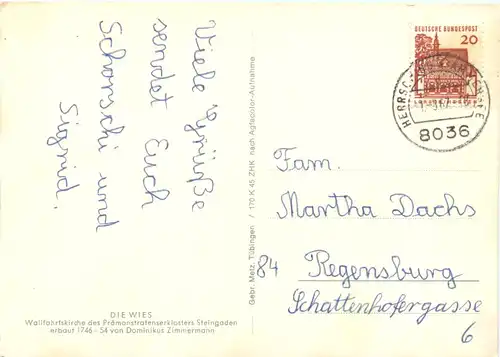 Viele Grüße
sendet Euch
Schorschi und
Sigrid.
DIE WIES
Wallfahrtskirche des Prämonstratenserklosters Steingaden
erbaut 1746 - 54 von Dominikus Zimmermann
Gebr. Metz, Tübingen / 170 K 45 ZHK nach Agfacolor-Aufnahme
DEUTSCHE BUNDESPOST
20
8036
Fam.
Martha Dachs
84 Regensburg
Schattenhofergasse
6